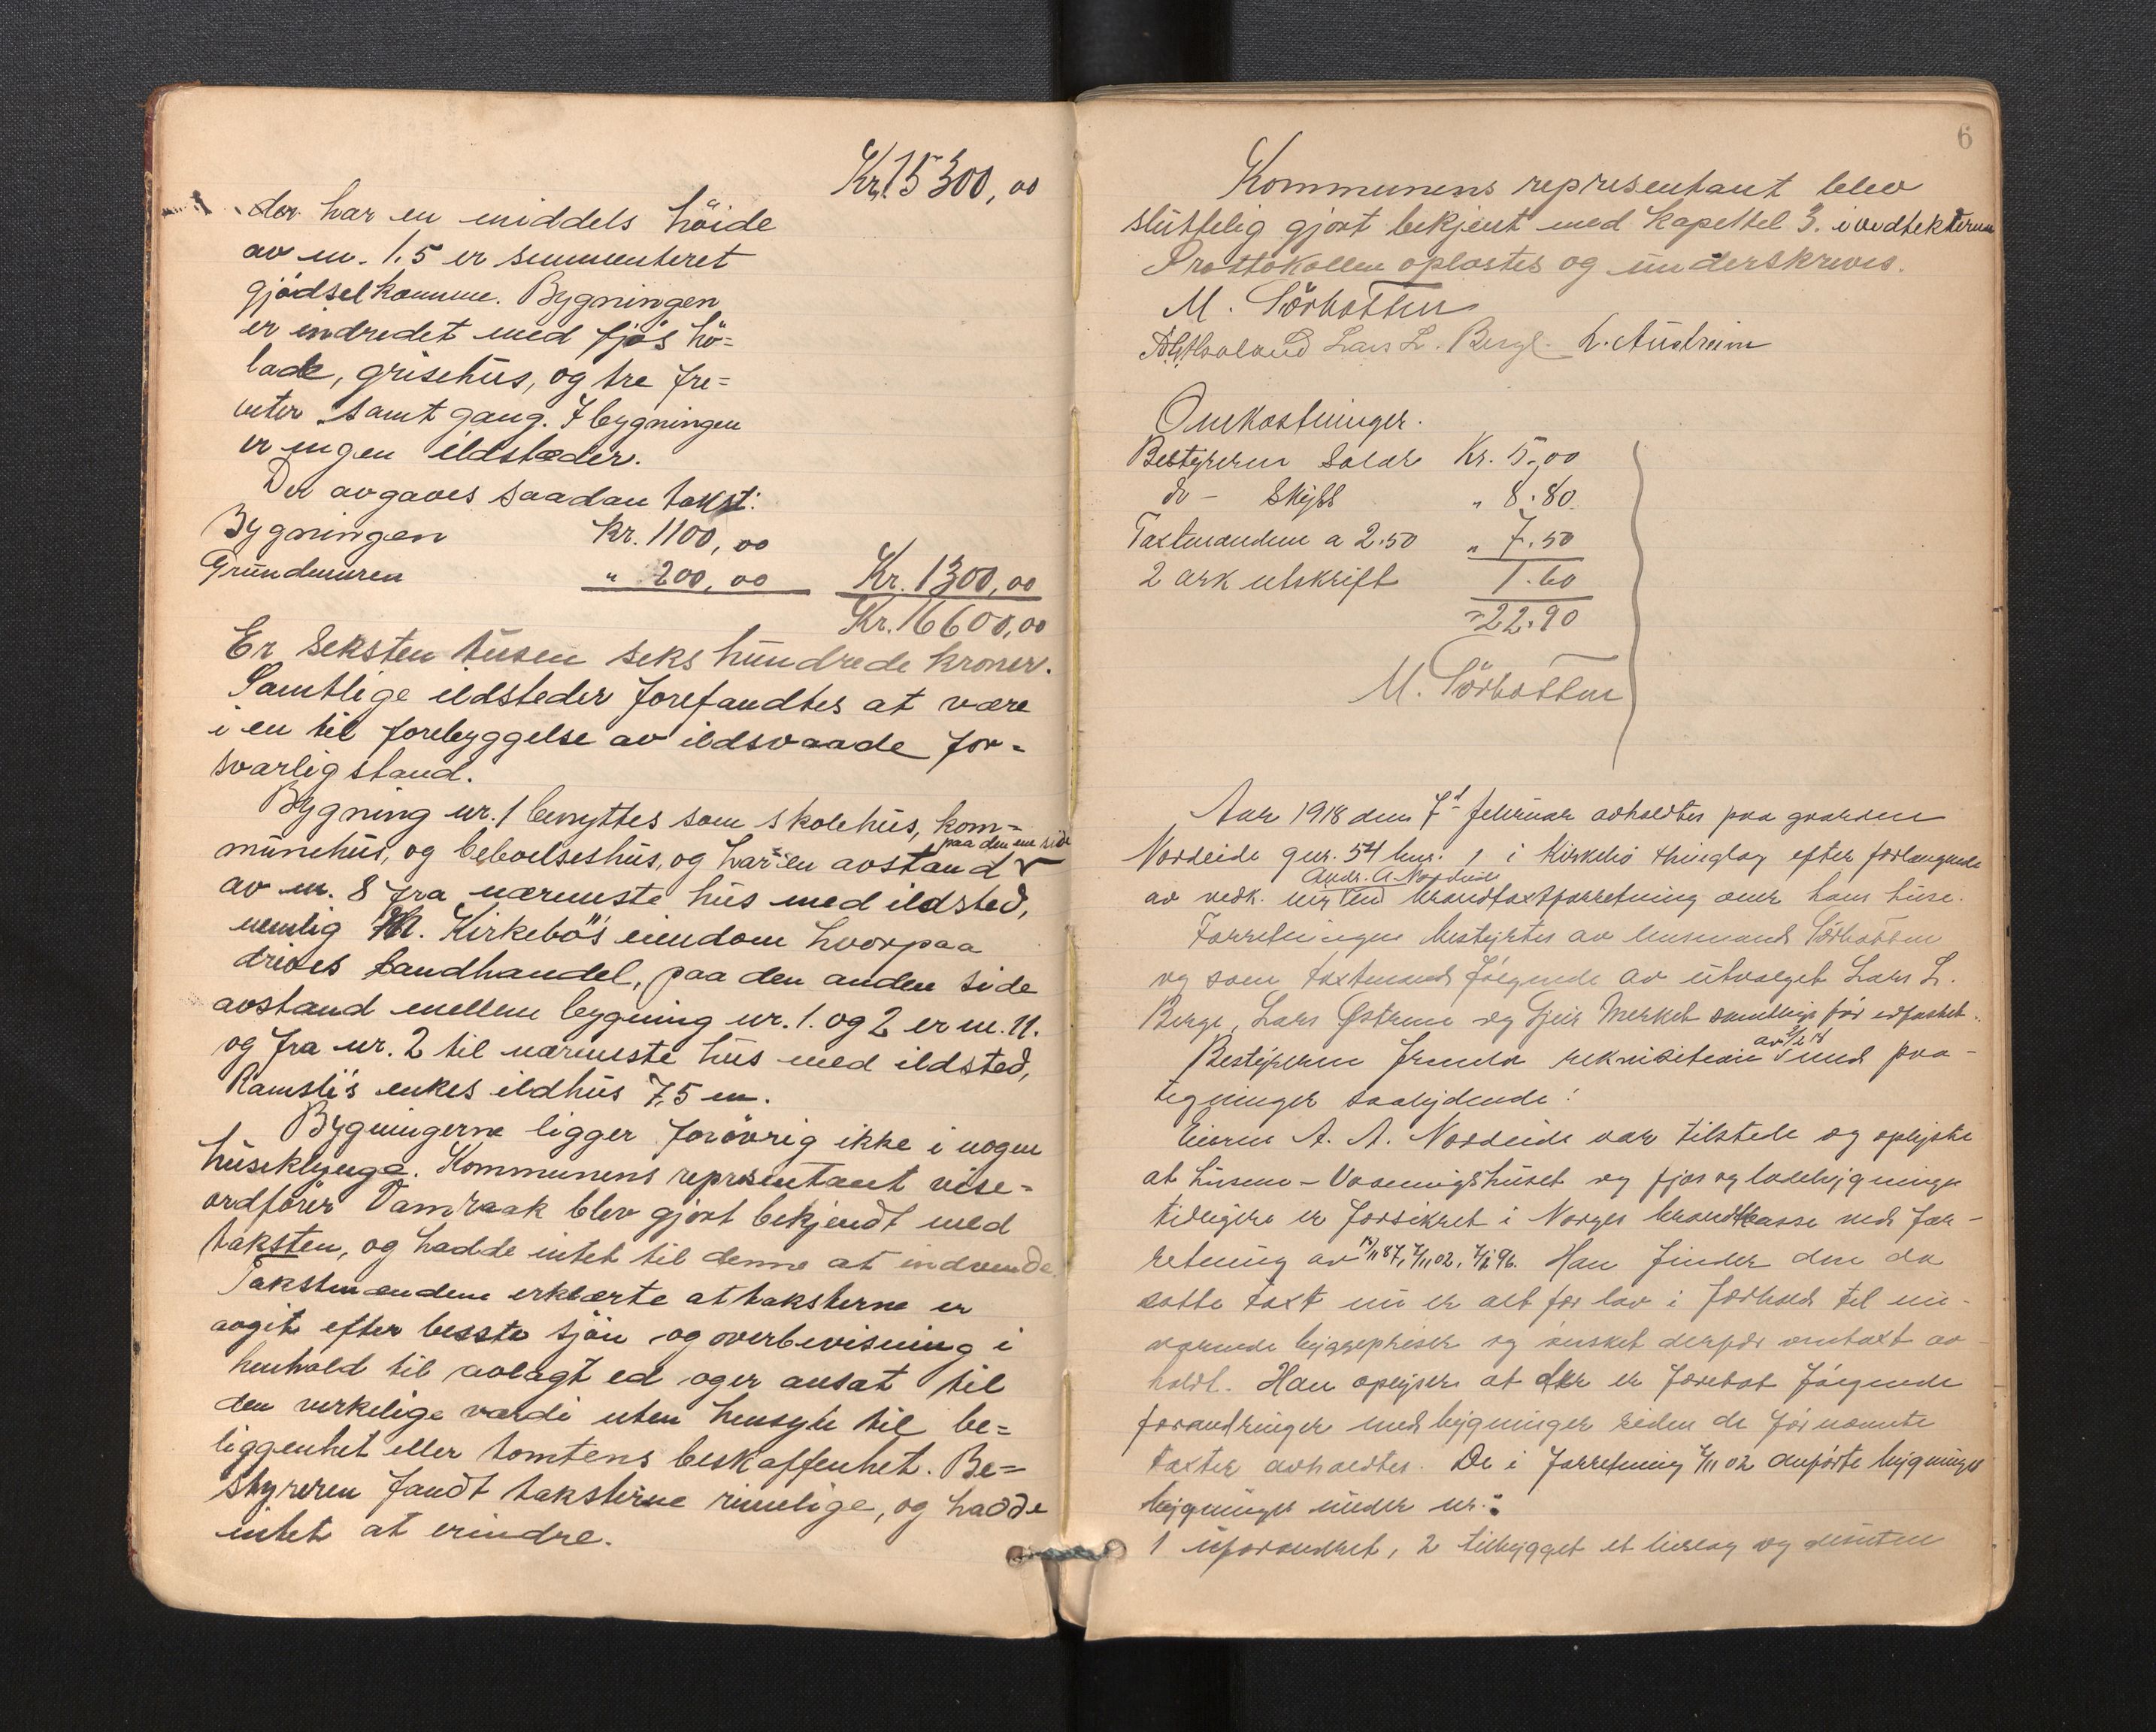 Kr. 15300,00
der har en middels höide
av m. 1.5 er sementeret
gjödselkomme. Bygningen
er indredet med fjös hö=
lade, grisehus, og tre fre=
uter samt gang. I bygningen
er ingen ildstæder.
Der avgaves saadan takst:
Bygningen Kr. 1100,00
Grundmuren " 200,00 Kr. 1300,00
Kr. 16600,00
Er seksten tusen seks hundrede kroner.
Samtlige ildsteder forefandtes at være
i en til forebyggelse av ildsvaade for=
svarlig stand.
Bygning nr. 1 benyttes som skolehus, kom=
paa den ene side
munehus, og beboelseshus, og har en avstand
av m. 8 fra nærmeste hus med ildsted,
nemlig Kirkebö's eiendom hvorpaa
drives landhandel, paa den anden side
avstand mellem bygning nr. 1. og 2 er m. 11.
og fra nr. 2 til nærmeste hus med ildsted,
Ramsli's enkes ildhus 7,5 m.
Bygningerne ligger forövrig ikke i nogen
huseklynge. Kommunens representant vise=
ordförer Vamraak blev gjort bekjendt med
taksten, og hadde intet til denne at indvende.
Takstmændene erklærte at taksterne er
avgit efter besste sjön og overbevisning i
henhold til avlagt ed og er ansat til
den virkelige værdi uten hensyn til be=
liggenhet eller tomtens beskaffenhet. Be=
styreren fandt taksterne rimelige, og hadde
intet at erindre.
6
Kommunens representant blev
sluttelig gjort bekjent med kapettel 3. i vedtekterne
Prottokollen oplæstes og underskrives.
M. Sörbotten
Lars L. Berge. L. Austreim
Omkostninger.
Bestyreren Salær Kr. 5,00
do - Skyss " 8.80
Taxtmændene a 2.50 " 7.50
2 ark utskrift 1.60
= 22.90
M. Sörbotten
Aar 1918 den 7d februar avholdtes paa gaarden
Nordeide gnr. 54 bnr. 1 i Kirkebö thinglag efter forlangende
Andr. A. Nordeide
av vedk. brandtaxtforretning over hans huse.
Forretningen bestyrtes av lensmand Sörbotten
og som taxtmænd fölgende av utvalget Lars L.
Berge, Lars Østrem og Geir Merket samtlige för edfæstet.
Bestyreren fremla rekvisition av med paa-
tegninger saalydende:
Eieren A. A. Nordeide var tilstede og oplyste
at husene - Vaaningshuset og fjös og ladebygninge
tidligere er forsikret i Norges brandkasse ved for-
retning av 87, 7/11 02, 96. Han finder den da
satte taxt nu er alt for lav i forhold til nu-
værende byggepriser og önsket derfor omtaxt av-
holdt. Han oplyser at der er foretat fölgende
forandringer med bygninger siden de för nævnte
taxter avholdtes. De i forretning 7/11 02 anförte bygninger
bygninger under nr.:
1 uforandret, 2 tilbygget et bislag og desuten